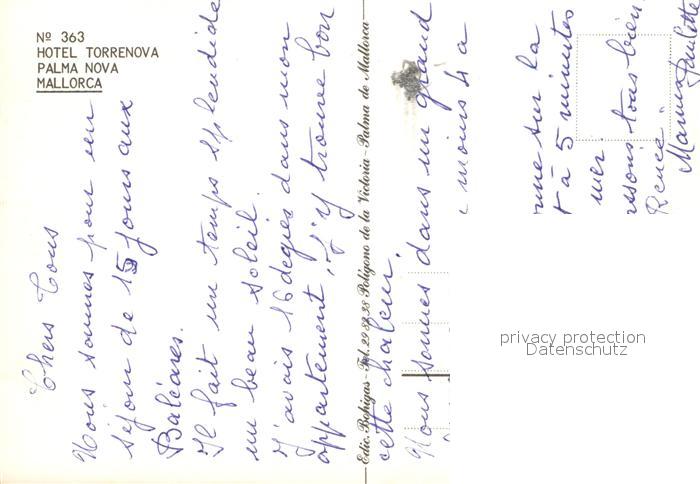 Nº 363
HOTEL TORRENOVA
PALMA NOVA
MALLORCA
Chers Tous
Nous sommes pour un
séjour de 15 jours aux
Baléares.
Il fait un temps splendide
un beau soleil.
J'avais 16 degrés dans mon
appartement, j'y trouve bon
Edic. Bohigas - Tel. 29 82 38 Polígono de la Victoria - Palma de Mallorca
cette chaleur.
Nous sommes dans un grand
moins 4 a
sur la
à 5 minutes
mer
ssons tous bien
Renée
Mamie Paulette
privacy protection
Datenschutz